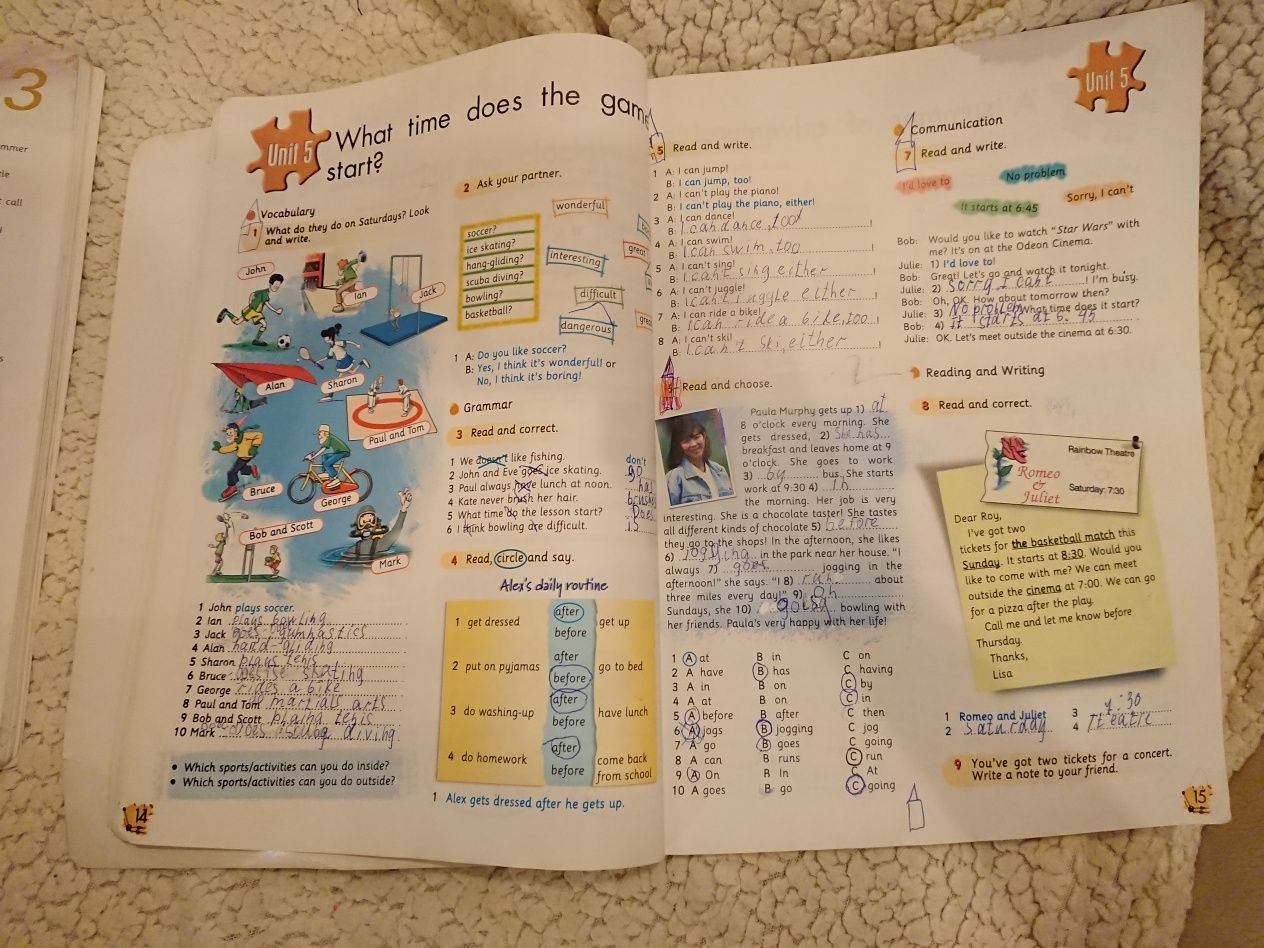 3
mmer
call
s
Unit 5
What time does the gam
start?
Vocabulary
1 What do they do on Saturdays? Look
and write.
John
Ian
Jack
Alan
Sharon
Paul and Tom
Bruce
George
Bob and Scott
Mark
1 John plays soccer.
2 Ian plays bowling
3 Jack does gymnastics
4 Alan hand-gliding
5 Sharon plays tenis
6 Bruce skating
7 George rides a bike
8 Paul and Tom martial arts
9 Bob and Scott tenis
10 Mark does diving
• Which sports/activities can you do inside?
• Which sports/activities can you do outside?
14
2 Ask your partner.
wonderful
soccer?
ice skating?
hang-gliding?
scuba diving?
bowling?
basketball?
interesting
grea
difficult
dangerous
grea
1 A: Do you like soccer?
B: Yes, I think it's wonderful! or
No, I think it's boring!
Grammar
3 Read and correct.
1 We doesn't like fishing. don't
2 John and Eve goes ice skating. go
3 Paul always have lunch at noon. has
4 Kate never brush her hair.
5 What time do the lesson start? Does
6 I think bowling are difficult. is
4 Read, circle and say.
Alex's daily routine
1 get dressed after before get up
2 put on pyjamas after before go to bed
3 do washing-up after before have lunch
4 do homework after before come back
from school
1 Alex gets dressed after he gets up.
Unit 5
5 Read and write.
1 A: I can jump!
B: I can jump, too!
2 A: I can't play the piano!
B: I can't play the piano, either!
3 A: I can dance!
B: I can dance, too !
4 A: I can swim!
B: I can swim, too !
5 A: I can't sing!
B: I can't sing either !
6 A: I can't juggle!
B: I can't juggle either !
7 A: I can ride a bike!
B: I can ride a bike, too !
8 A: I can't ski!
B: I can't ski, either !
Read and choose.
Paula Murphy gets up 1) at
8 o'clock every morning. She
gets dressed, 2) She has
breakfast and leaves home at 9
o'clock. She goes to work
3) by bus. She starts
work at 9:30 4) in
the morning. Her job is very
interesting. She is a chocolate taster! She tastes
all different kinds of chocolate 5) before
they go to the shops! In the afternoon, she likes
6) in the park near her house. "I
always 7) goes jogging in the
afternoon!" she says. "I 8) run about
three miles every day!" 9) On
Sundays, she 10) going bowling with
her friends. Paula's very happy with her life!
1 A at B in C on
2 A have B has C having
3 A in B on C by
4 A at B on C in
5 A before B after C then
6 A jogs B jogging C jog
7 A go B goes C going
8 A can B runs C run
9 A On B In C At
10 A goes B go C going
Communication
7 Read and write.
I'd love to
No problem
It starts at 6.45
Sorry, I can't
Bob: Would you like to watch "Star Wars" with
me? It's on at the Odeon Cinema.
Julie: 1) I'd love to!
Bob: Great! Let's go and watch it tonight.
Julie: 2) Sorry I can't ! I'm busy.
Bob: Oh, OK. How about tomorrow then?
Julie: 3) No problem What time does it start?
Bob: 4) It starts at 6.45
Julie: OK. Let's meet outside the cinema at 6:30.
Reading and Writing
8 Read and correct.
Rainbow Theatre
Romeo
&
Juliet
Saturday: 7:30
Dear Roy,
I've got two
tickets for the basketball match this
Sunday. It starts at 8:30. Would you
like to come with me? We can meet
outside the cinema at 7:00. We can go
for a pizza after the play.
Call me and let me know before
Thursday.
Thanks,
Lisa
1 Romeo and Juliet
2 Saturday
3
4
9 You've got two tickets for a concert.
Write a note to your friend.
15